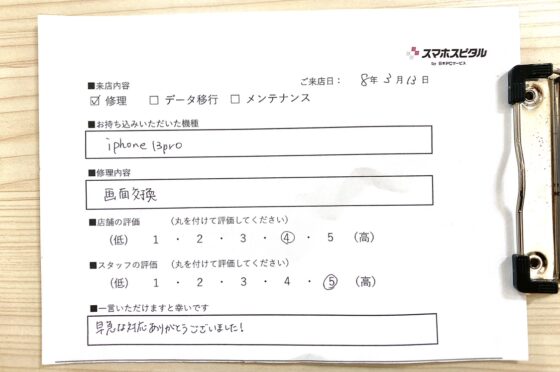 スマホスピタル
by 日本PCサービス
ご来店日： 8年 3月 13日
■来店内容
☑ 修理 □ データ移行 □ メンテナンス
■お持ち込みいただいた機種
iphone 13pro
■修理内容
画面交換
■店舗の評価 （丸を付けて評価してください）
（低） 1 ・ 2 ・ 3 ・ ④ ・ 5 （高）
■スタッフの評価 （丸を付けて評価してください）
（低） 1 ・ 2 ・ 3 ・ 4 ・ ⑤ （高）
■一言いただけますと幸いです
早急な対応ありがとうございました！